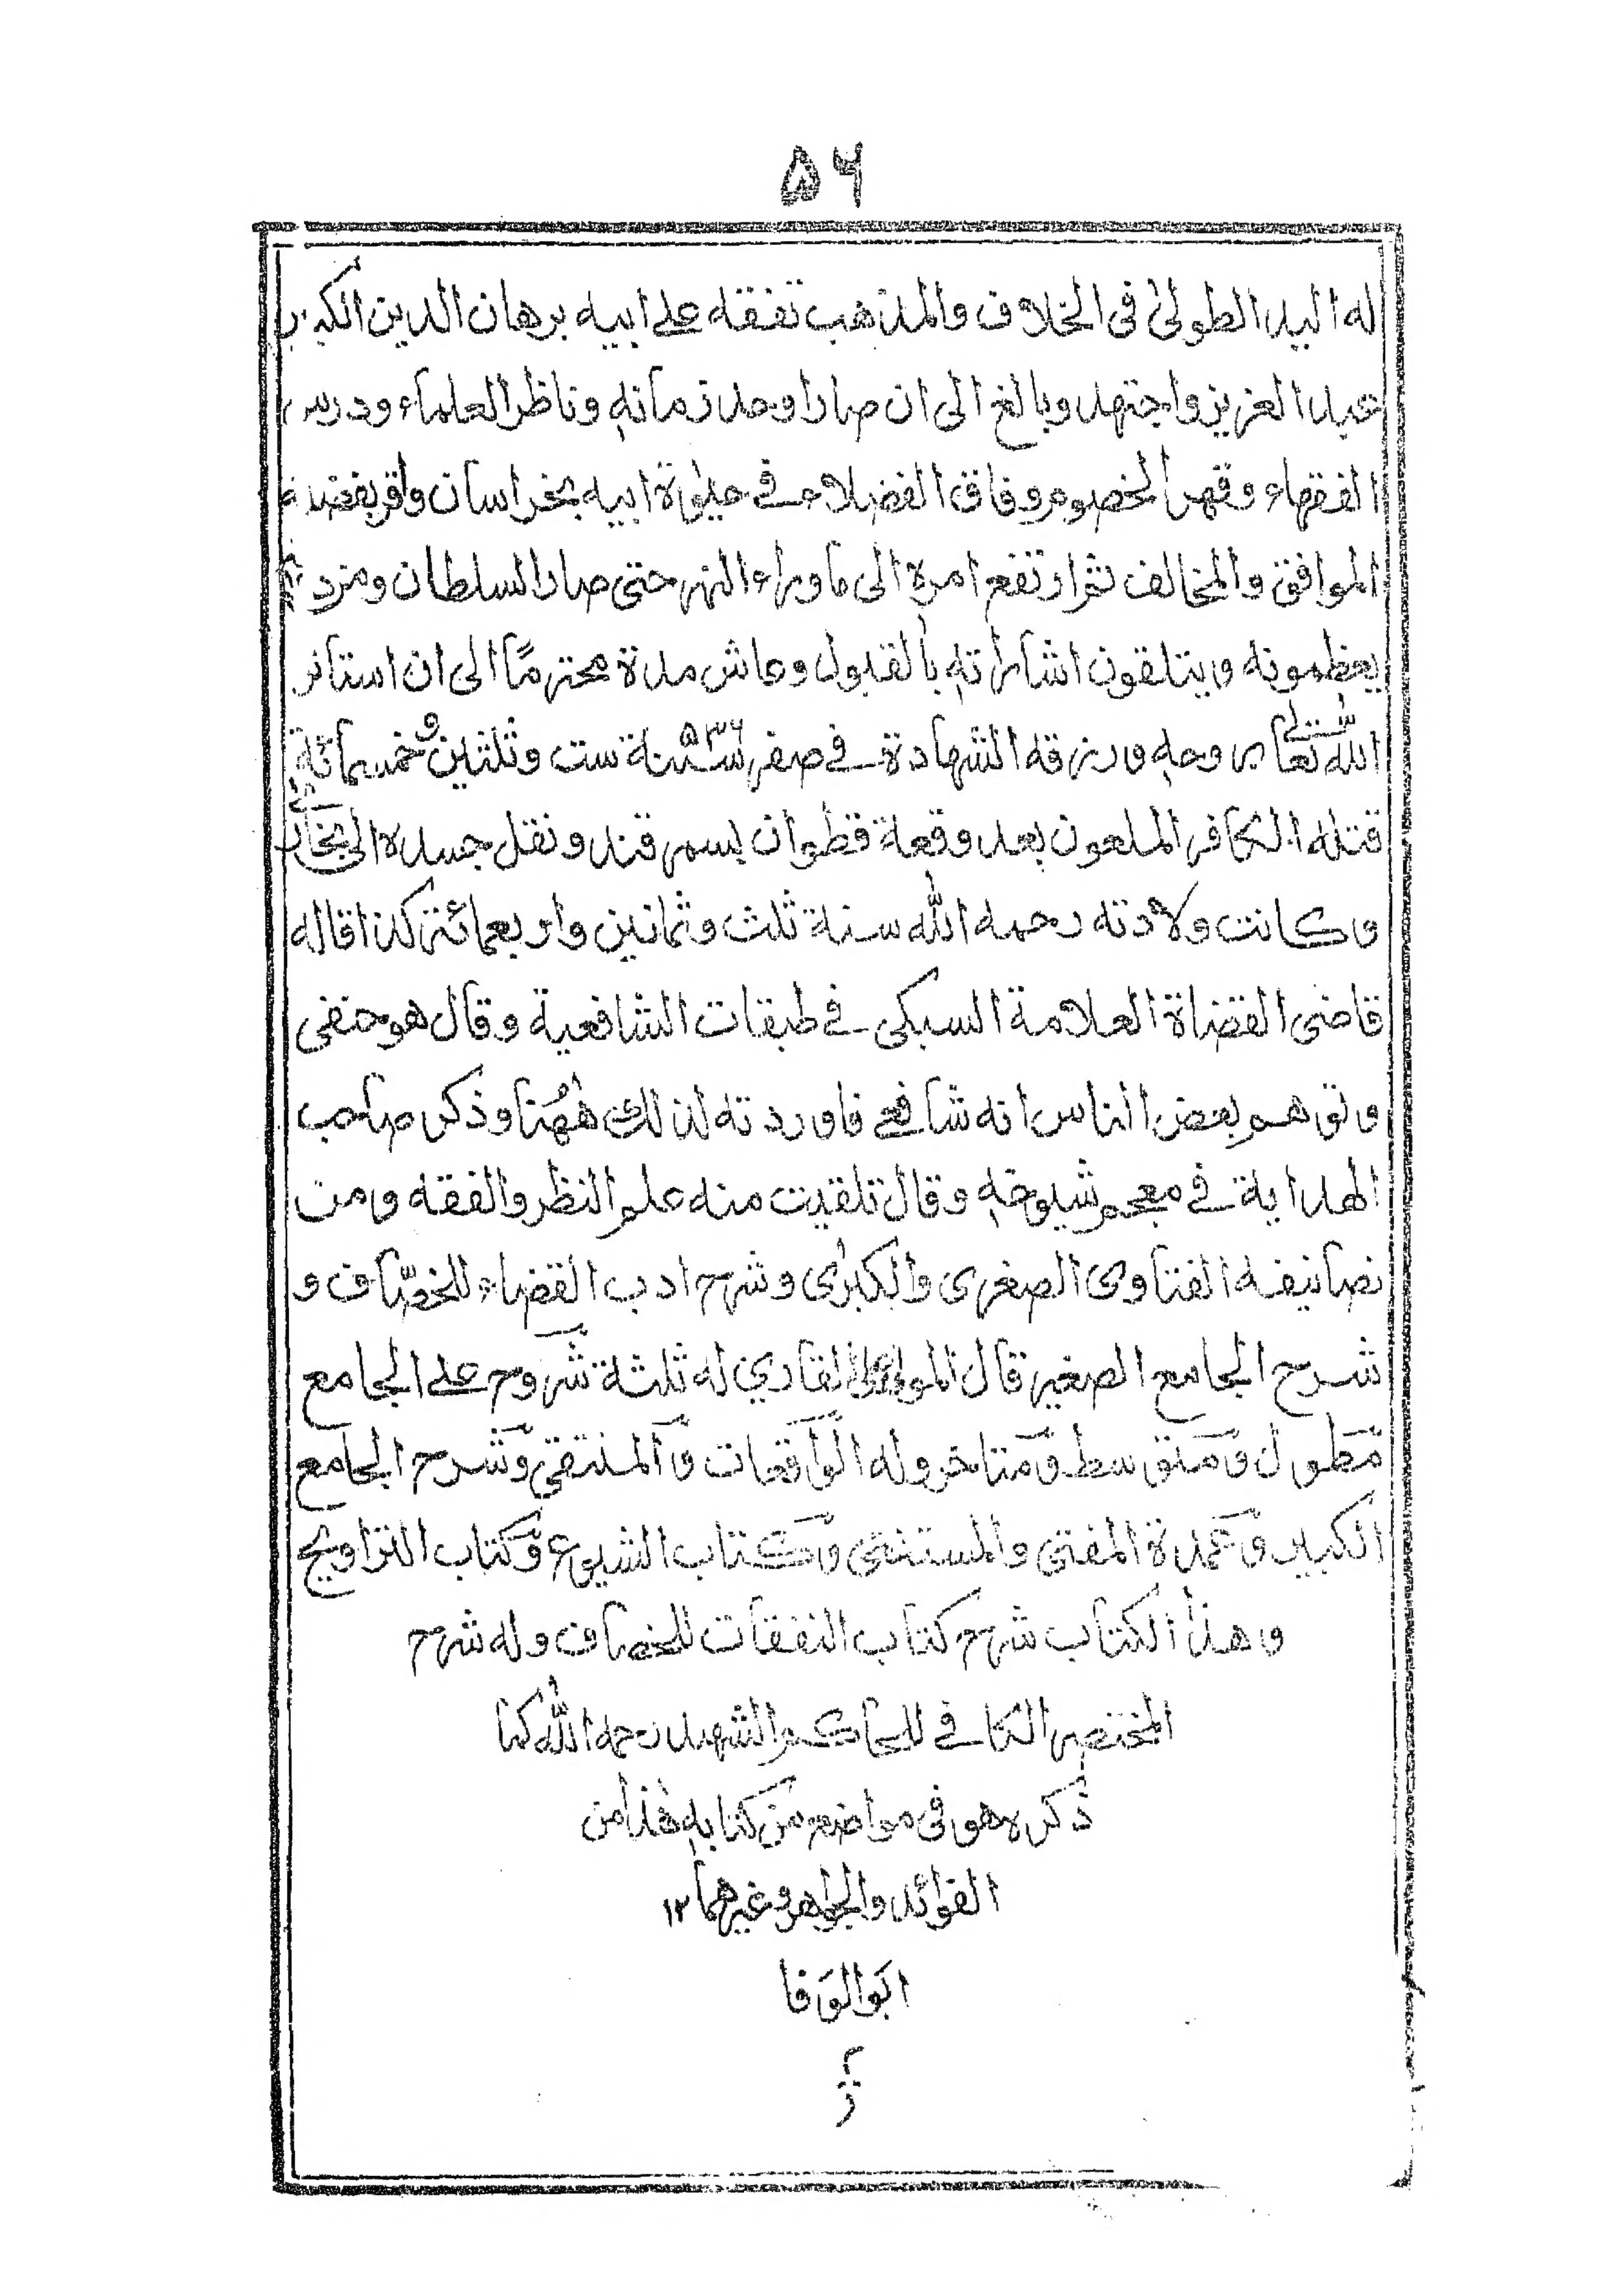 ۵۶
له اليد الطولىٰ فى الخلاف والمذهب تفقه علے ابيه برهان الدين الكبير
عبد العزيز واجتهد وبالغ الى ان صار اوحد زمانهٖ وناظر العلماء ودرس
الفقهاء وقهر الخصوم وفاق الفضلاء فے حيٰوة ابيه بخراسان واقر بفضله
الموافق والمخالف ثم ارتفع امره الى ما وراء النهر حتى صار السلطان ومن دونه
يعظمونه ويتلقون اشاراته بالقبول وعاش مدة محترمًا الى ان استاثر
الله تعالىٰ بروحهٖ ورزقه الشهادة فے صفر ۵۳۶ سنة ست وثلثين وخمسمائة
قتله الكافر الملعون بعد وقعة قطوان بسمرقند ونقل جسده الى بخارا
وكانت ولادته رحمه الله سنة ثلث وثمانين واربعمائة كذا قاله
قاضى القضاة العلامة السبكى فے طبقات الشافعية وقال هو حنفى
وتوهم بعض الناس انه شافعے فاوردته لذلك هٰهُنا وذكر صاحب
الهداية فے معجم شيوخهٖ وقال تلقيت منه علم النظر والفقه ومن
تصانيفه الفتاوى الصغرى والكبرىٰ وشرح ادب القضاء للخصّاف و
شرح الجامع الصغير قال المولى على القارى له ثلثة شروح علے الجامع
مطول ومتوسط ومتاخر وله الواقعات والمنتقى وشرح الجامع
الكبير وعمدة المفتى والمستفتى وكتاب الشيوع وكتاب التراويح
وهذا الكتاب شرح كتاب النفقات للخصاف وله شرح
المختصر الكافے للحاكم الشهيد رحمه الله كما
ذكره هو فى مواضع من كتابهٖ هٰذا من
الفوائد والجواهر وغيرهما ۱۲
ابو الوفا